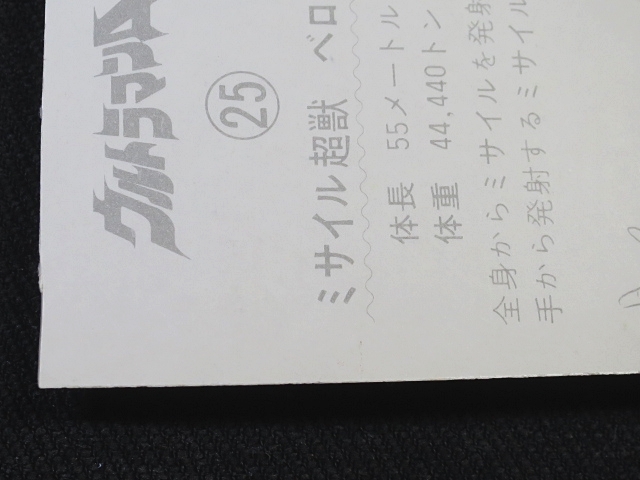 ウルトラマンA
25
ミサイル超獣 ベロ
体長 55メートル
体重 44,440トン
全身からミサイルを発射
手から発射するミサイル